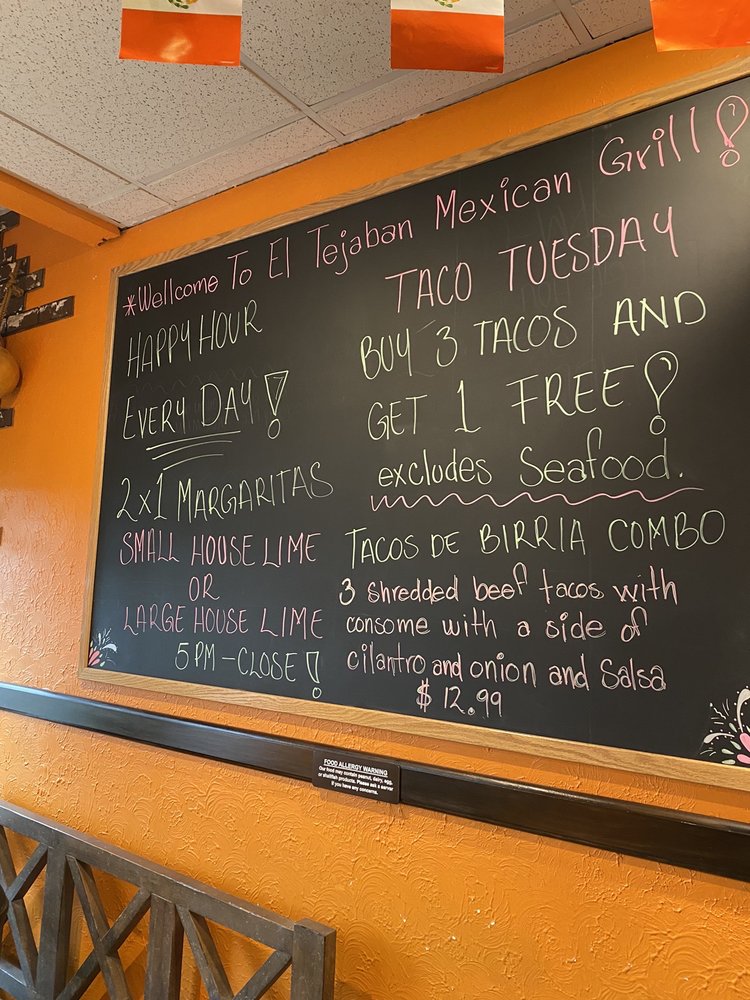 *Wellcome To El Tejaban Mexican Grill!
HAPPY HOUR
EVERY DAY!
2x1 MARGARITAS
SMALL HOUSE LIME
OR
LARGE HOUSE LIME
5 PM - CLOSE!
TACO TUESDAY
BUY 3 TACOS AND
GET 1 FREE!
excludes Seafood.
TACOS DE BIRRIA COMBO
3 shredded beef tacos with
consome with a side of
cilantro and onion and Salsa
$ 12.99
FOOD ALLERGY WARNING
Our food may contain peanut, dairy, egg,
or shellfish products. Please ask a server
if you have any concerns.